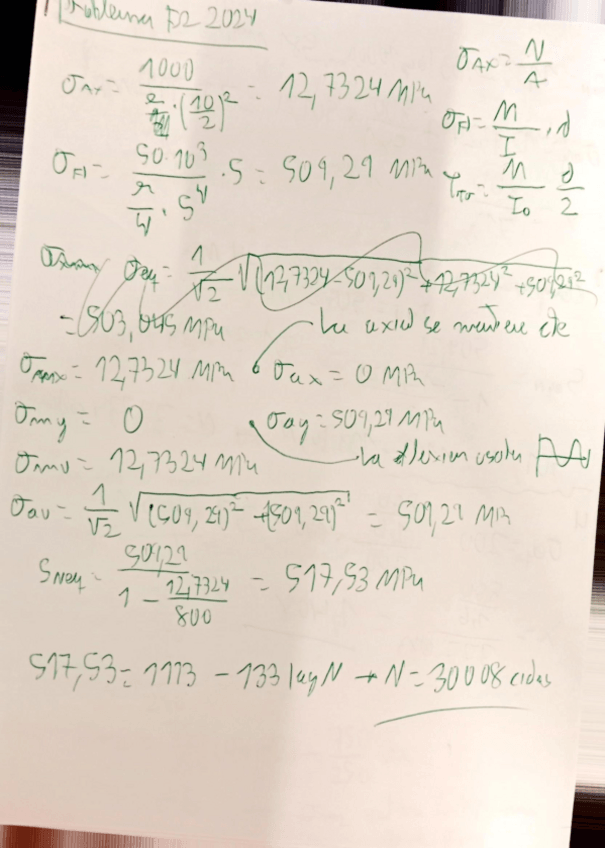 Problema P2 2024
σAx = 1000 / (π/4 · (10/2)²) = 12,7324 MPa
σAx = N/A
σFl = M/I · d
σFl = 50·10³ / (π/4 · 5⁴) · 5 = 509,29 MPa
τTor = M/I₀ d/2
σeq = 1/√2 √((12,7324-509,29)² + 12,7324² + 509,29²)
= 503,045 MPa
La axial se mantiene cte
σmx = 12,7324 MPa
σax = 0 MPa
σmy = 0
σay = 509,29 MPa
σmv = 12,7324 MPa
La flexion oscila
σav = 1/√2 √((509,29)² + (509,29)²) = 509,29 MPa
SNeq = 509,29 / (1 - 12,7324/800) = 517,53 MPa
517,53 = 1113 - 133 log N → N = 30008 ciclos